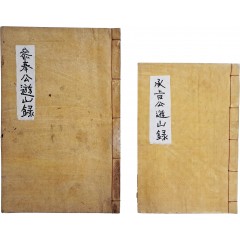 參奉公遊山錄
承旨公遊山錄